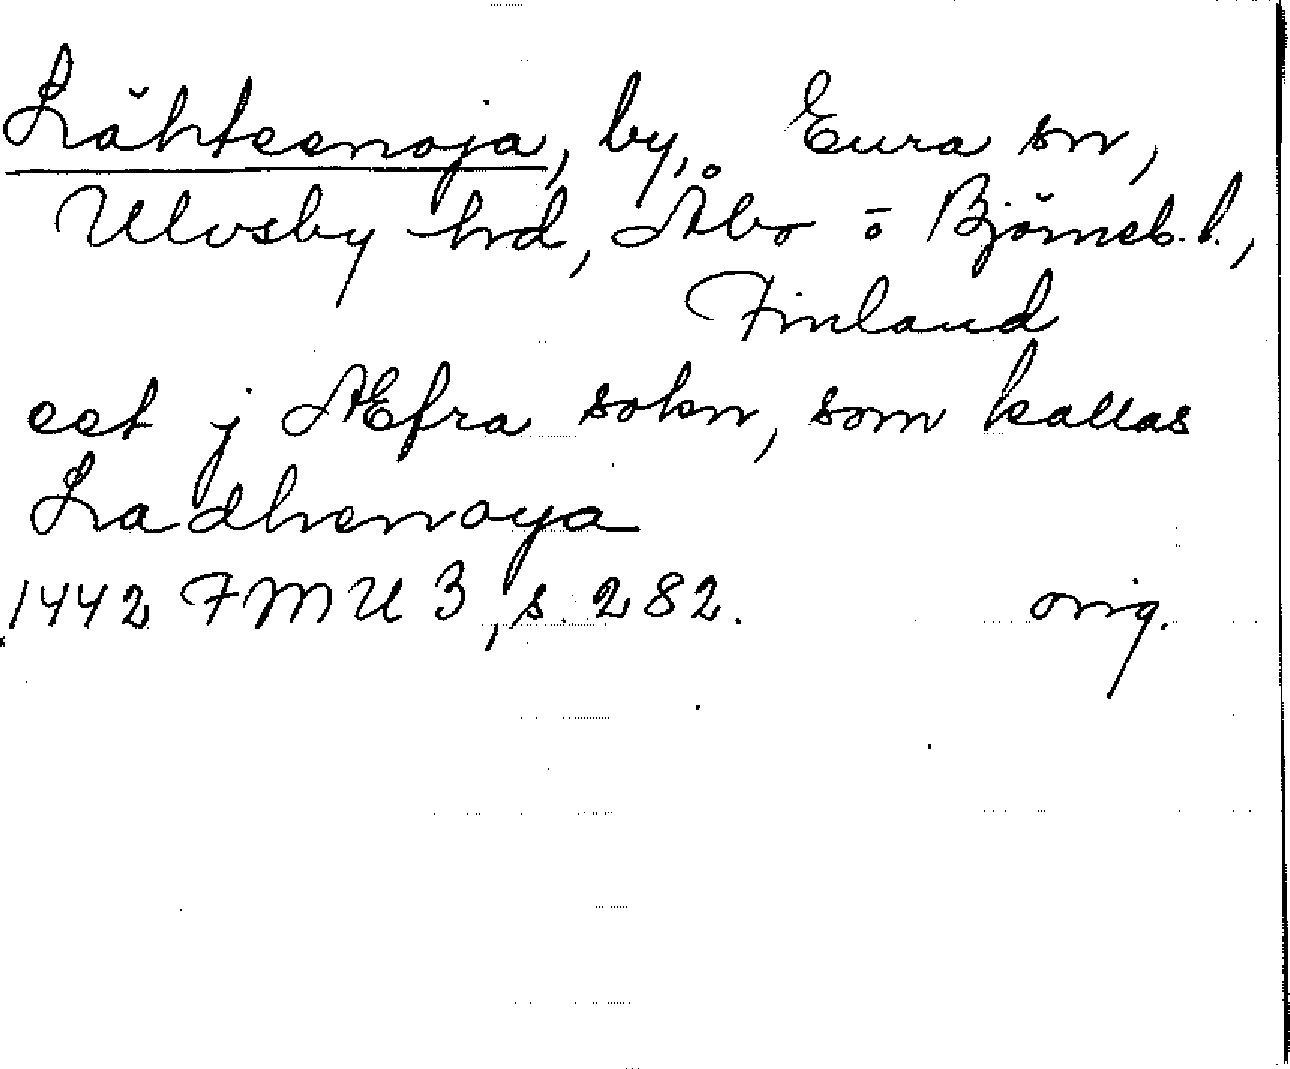 Lähteenoja, by, Eura sn,
Ulvsby hrd, Åbo o Björneb. l.,
Finland
eet j Æfra sokn, som kallas
Ladhenoya
1442 FMU 3, s. 282. orig.